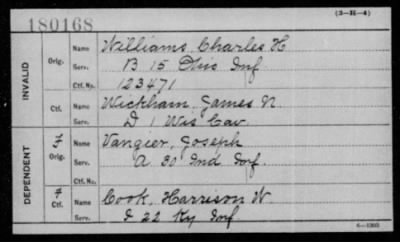 180168 (3-H-4)
INVALID
Orig. Name Williams, Charles H
Serv. B 15 Ohio Inf
Ctf. No. 123471
Ctf. Name Wickham, James N.
Serv. D 1 Wis Cav
DEPENDENT
Orig. Name Vangier, Joseph
Serv. A 30 Ind Inf.
Ctf. No.
Ctf. Name Cook, Harrison W.
Serv. D 22 Ky Inf